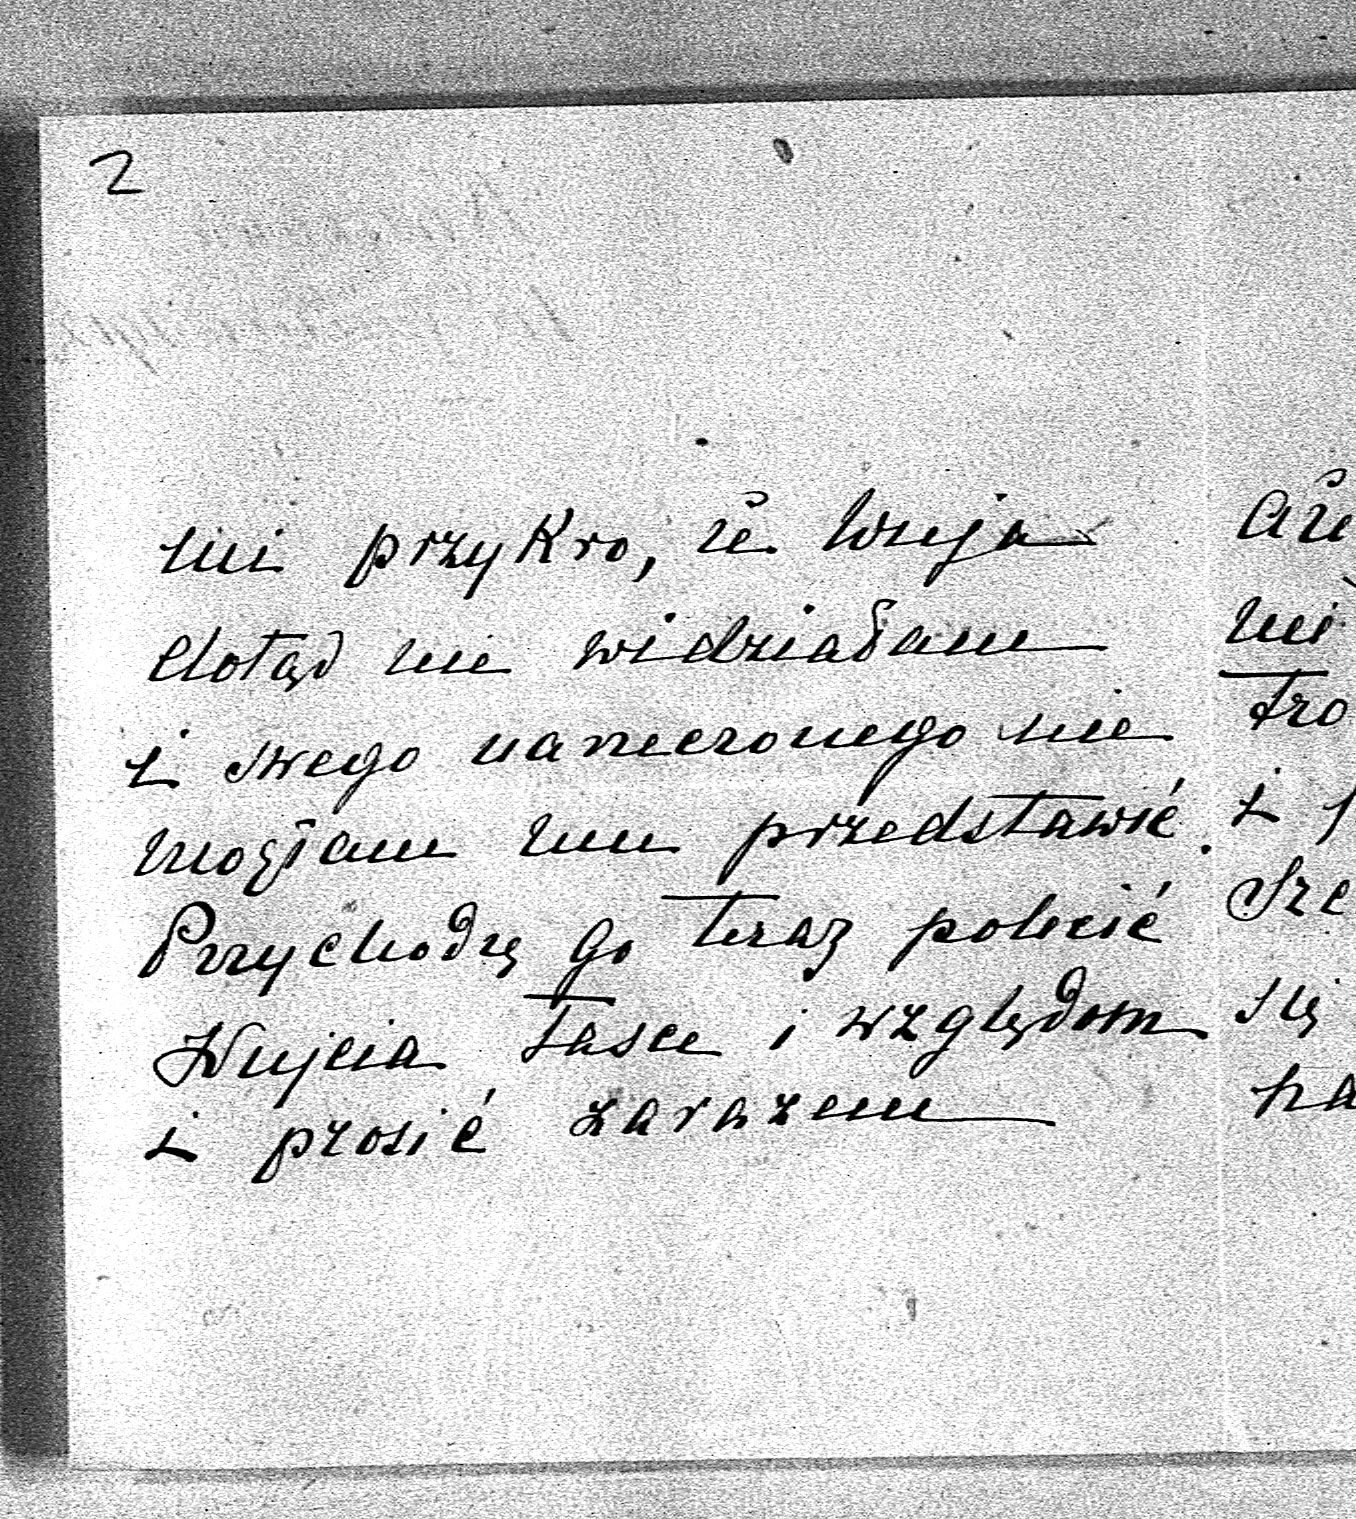 2
mi przykro, że Wuja
dotąd nie widziałam
i swego narzeczonego nie
mogłam mu przedstawić.
Przychodzę go teraz polecić
Wujcia łasce i względom
i prosić zarazem